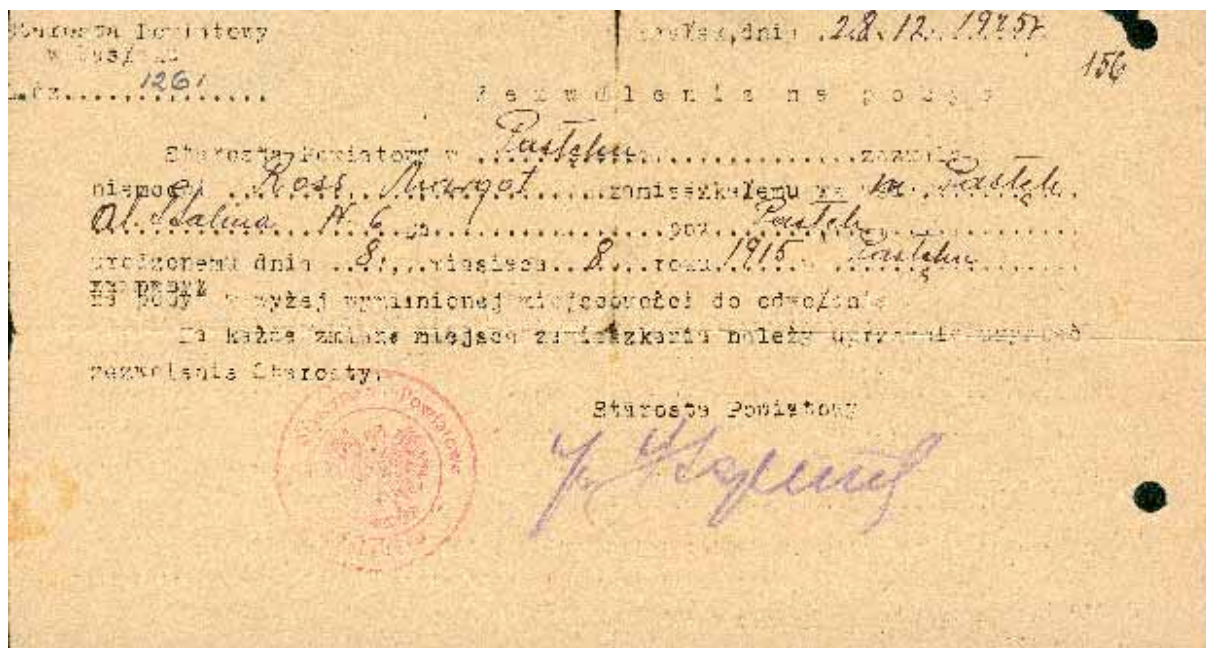 Starosta Powiatowy dnia 28.12.1945r.
w
L.dz. 1261 156
Zezwolenie na pobyt
Starosta Powiatowy w Pasłęku zezwala
niemcowi Ross Margot zamieszkałemu w m. Pasłęk
Al. Stalina N. 6 pow. Pasłęk
urodzonemu dnia 8. miesiąca 8 roku 1915 w Pasłęku
na pobyt w wyżej wymienionej miejscowości do odwołania
Na każdą zmianę miejsca zamieszkania należy uprzednio uzyskać
zezwolenie Starosty.
Starosta Powiatowy